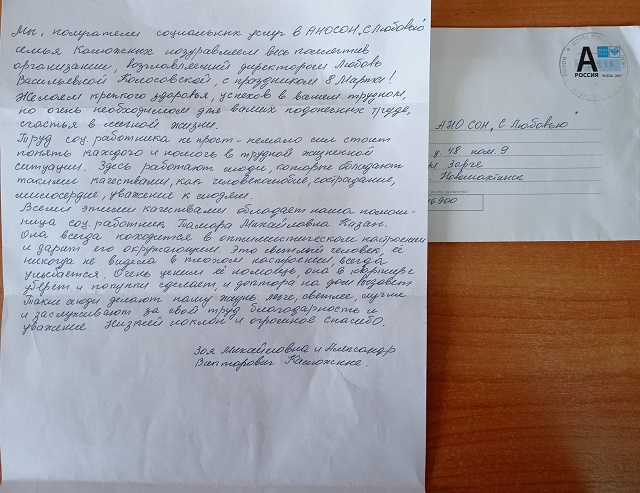 Мы, получатели социальных услуг в АНОСОН „С Любовью"
семья Калюжных поздравляем весь коллектив
организации, возглавляемый директором Любовь
Васильевной Колосовской, с праздником 8 Марта!
Желаем крепкого здоровья, успехов в вашем трудном,
но очень необходимом для ваших подопечных труде,
счастья в личной жизни.
Труд соц. работника не прост - немало сил стоит
понять каждого и помочь в трудной жизненной
ситуации. Здесь работают люди, которые обладают
такими качествами, как человеколюбие, сострадание,
милосердие, уважение к людям.
Всеми этими качествами обладает наша помощ-
ница соц. работник Тамара Михайловна Казак.
Она всегда находится в оптимистическом настроении
и дарит его окружающим. Это светлый человек, её
никогда не видела в плохом настроении, всегда
улыбается. Очень ценим её помощь, она в квартире
уберёт и покупки сделает, и доктора на дом вызовет
Такие люди делают нашу жизнь легче, светлее, лучше
и заслуживают за свой труд благодарность и
уважение Низкий поклон и огромное спасибо.
Зоя Михайловна и Александр
Викторович Калюжные.
А
РОССИЯ
АНО СОН „С Любовью
д. 48 пом. 9
Зорге
г. Новошахтинск
6900